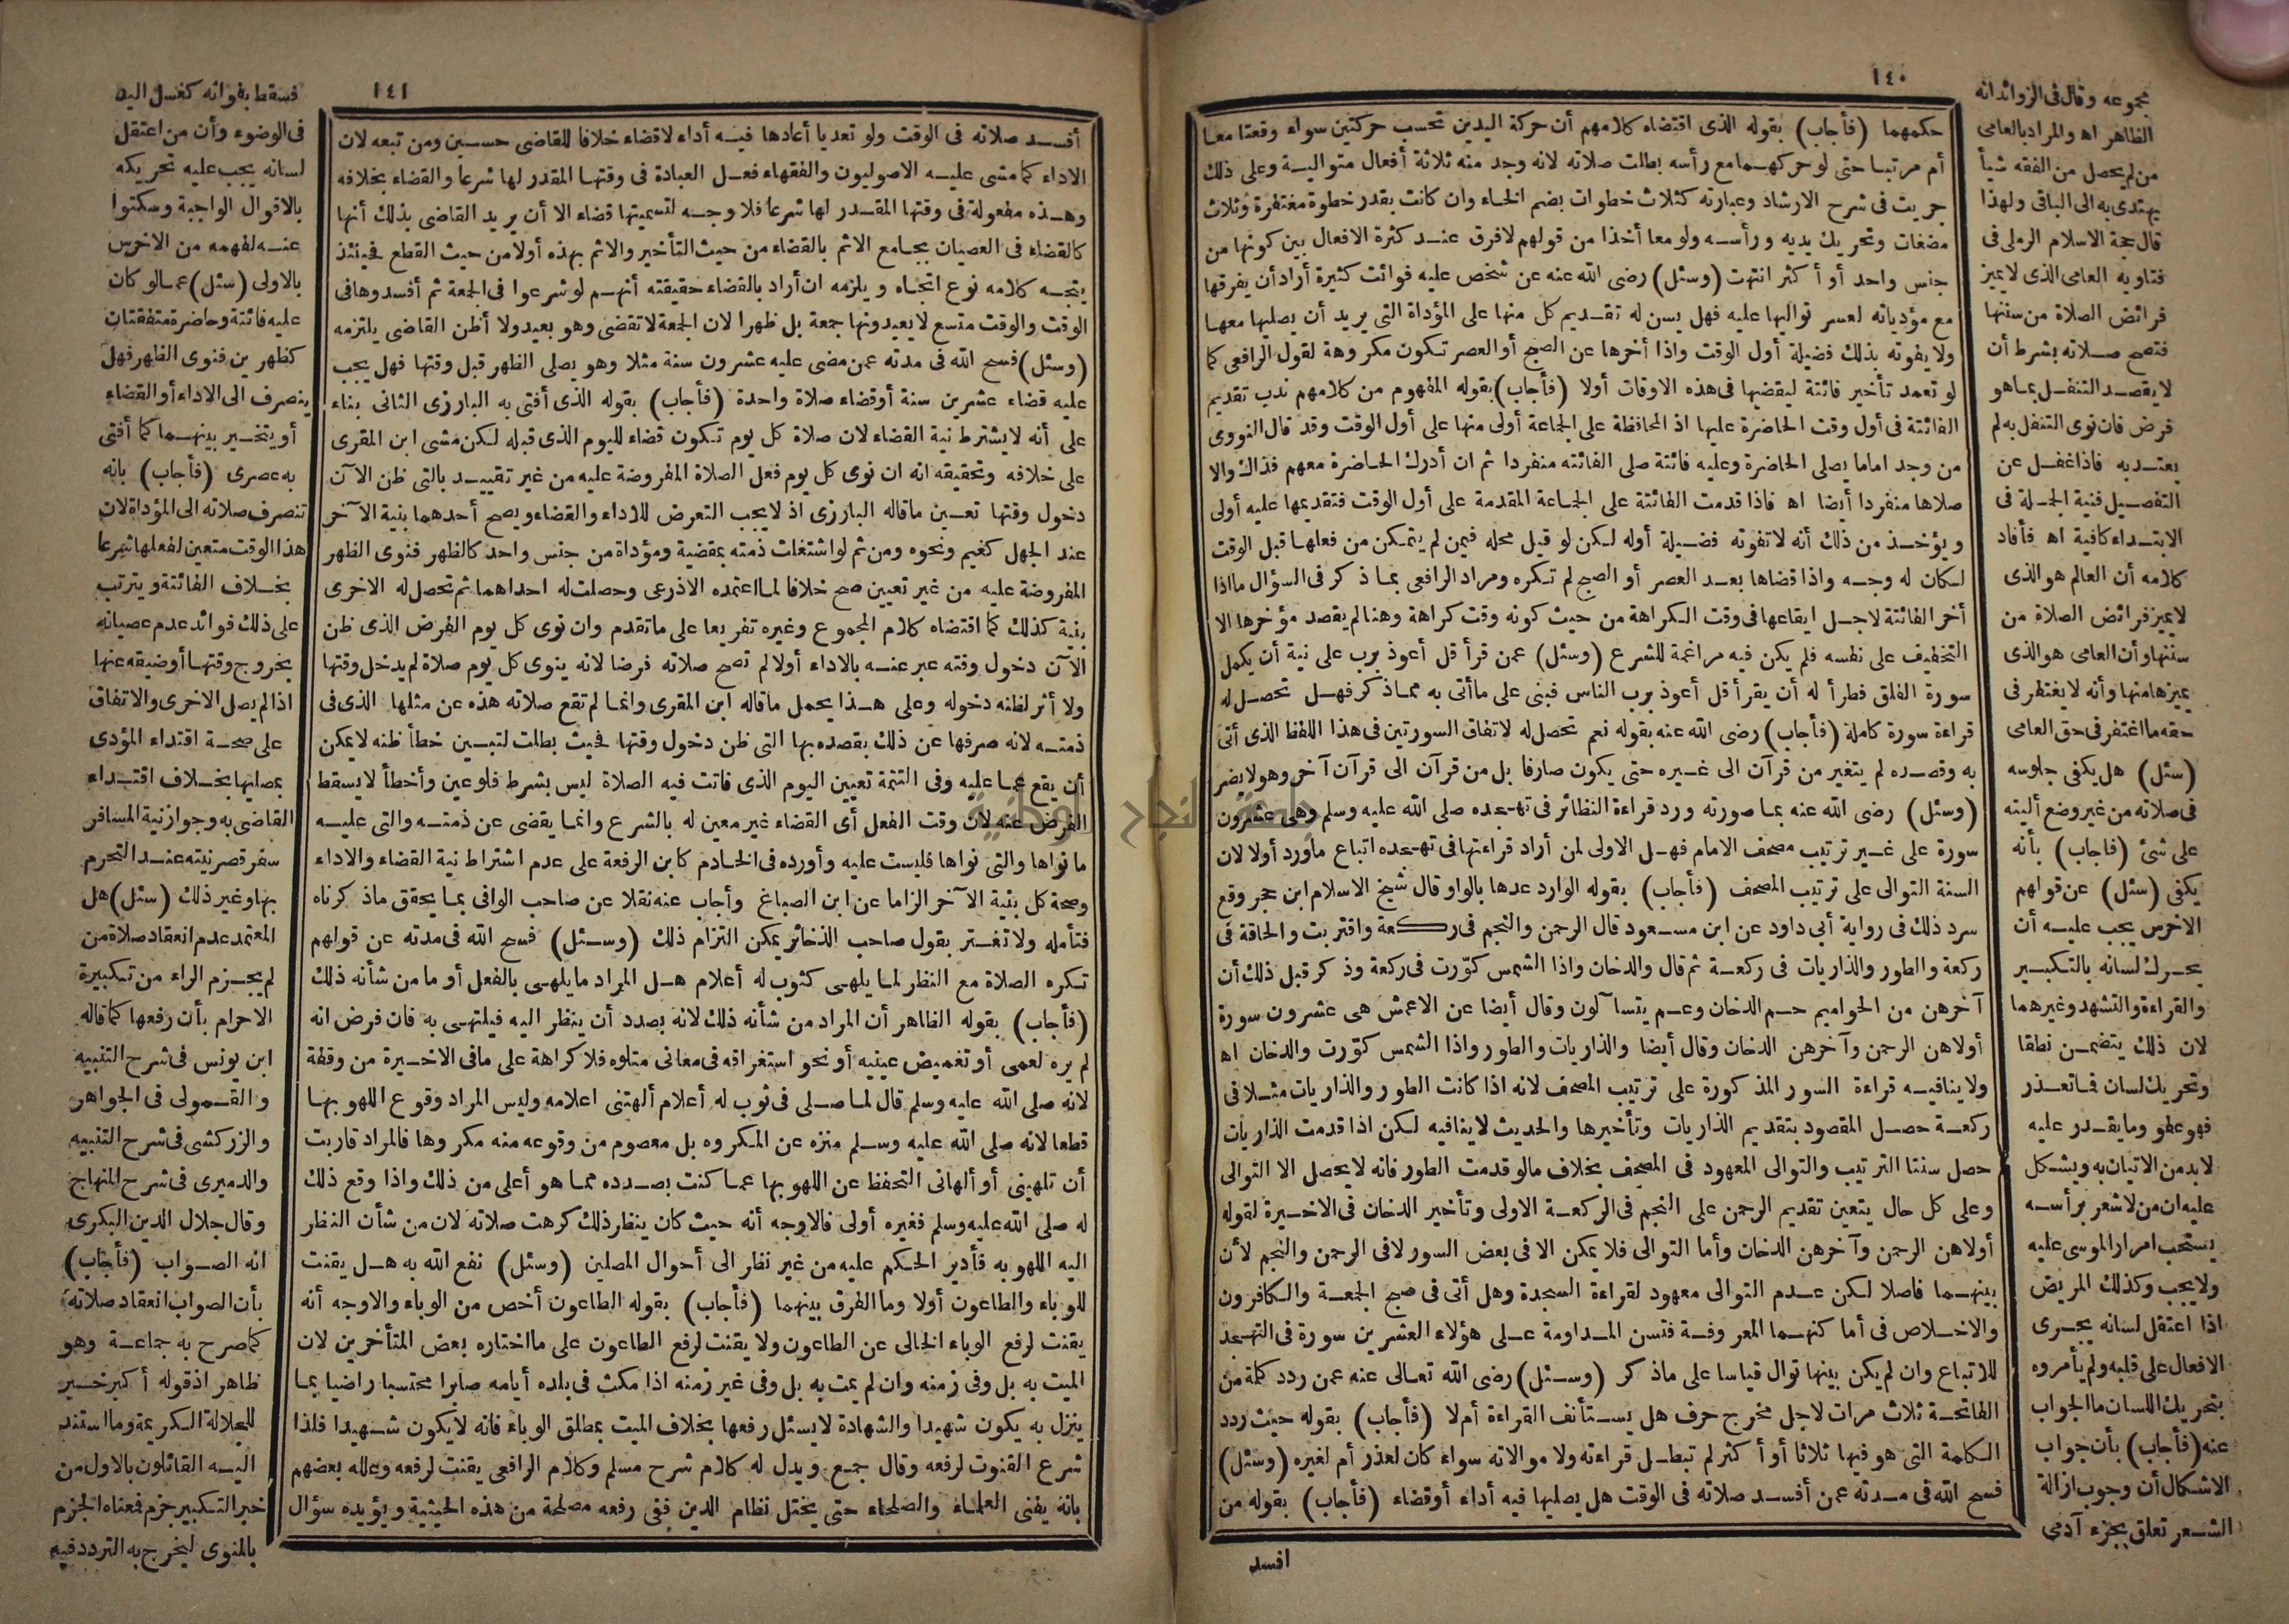 ١٤٠
حكمهما (فأجاب) بقوله الذى اقتضاه كلامهم أن حركة اليدين تحسب حركتين سواء وقعتا معا
أم مرتبا حتى لو حركهما مع رأسه بطلت صلاته لانه وجد منه ثلاثة أفعال متوالية وعلى ذلك
جريت فى شرح الارشاد وعبارته كثلاث خطوات بضم الخاء وان كانت بقدر خطوة مغتفرة وثلاث
مضغات وتحريك يديه ورأسه ولو معا أخذا من قولهم لافرق عند كثرة الافعال بين كونها من
جنس واحد أو أكثر انتهت (وسئل) رضى الله عنه عن شخص عليه فوائت كثيرة أراد أن يفرقها
مع مؤدياته لعسر تواليها عليه فهل يسن له تقديم كل منها على المؤداة التى يريد أن يصليها معها
ولا يفوته بذلك فضيلة أول الوقت واذا أخرها عن الصبح أو العصر تكون مكروهة لقول الرافعى كما
لو تعمد تأخير فائتة ليقضيها فى هذه الاوقات أولا (فأجاب) بقوله المفهوم من كلامهم ندب تقديم
الفائتة فى أول وقت الحاضرة عليها اذ المحافظة على الجماعة أولى منها على أول الوقت وقد قال النووى
من وجد اماما يصلى الحاضرة وعليه فائتة صلى الفائته منفردا ثم ان أدرك الحاضرة معهم فذاك والا
صلاها منفردا أيضا اه فاذا قدمت الفائتة على الجماعة المقدمة على أول الوقت فتقديمها عليه أولى
ويؤخذ من ذلك أنه لا تفوته فضيلة أوله لكن لو قيل محله فيمن لم يتمكن من فعلها قبل الوقت
لكان له وجه واذا قضاها بعد العصر أو الصبح لم تكره ومراد الرافعى بما ذكر فى السؤال ما اذا
أخر الفائتة لاجل ايقاعها فى وقت الكراهة من حيث كونه وقت كراهة وهنا لم يقصد مؤخرها الا
التخفيف على نفسه فلم يكن فيه مراغمة للشرع (وسئل) عمن قرأ قل أعوذ برب على نية أن يكمل
سورة الفلق فطرأ له أن يقرأ قل أعوذ برب الناس فبنى على ما أتى به مما ذكر فهل تحصل له
قراءة سورة كاملة (فأجاب) رضى الله عنه بقوله نعم تحصل له لاتفاق السورتين فى هذا اللفظ الذى أتى
به وقصده لم يتغير من قرآن الى غيره حتى يكون صارفا بل من قرآن الى قرآن آخر وهو لا يضر
(وسئل) رضى الله عنه بما صورته ورد قراءة النظائر فى تهجده صلى الله عليه وسلم وهى عشرون
سورة على غير ترتيب مصحف الامام فهل الاولى لمن أراد قراءتها فى تهجده اتباع ما ورد أولا لان
السنة التوالى على ترتيب المصحف (فأجاب) بقوله الوارد عدها بالواو قال شيخ الاسلام ابن حجر وقع
سرد ذلك فى رواية أبى داود عن ابن مسعود قال الرحمن والنجم فى ركعة واقتربت والحاقة فى
ركعة والطور والذاريات فى ركعة ثم قال والدخان واذا الشمس كوّرت فى ركعة وذكر قبل ذلك أن
آخرهن من الحواميم حم الدخان وعم يتسا آلون وقال أيضا عن الاعمش هى عشرون سورة
أولاهن الرحمن وآخرهن الدخان وقال أيضا والذاريات والطور واذا الشمس كوّرت والدخان اه
ولا ينافيه قراءة السور المذكورة على ترتيب المصحف لانه اذا كانت الطور والذاريات مثلا فى
ركعة حصل المقصود بتقديم الذاريات وتأخيرها والحديث لا ينافيه لكن اذا قدمت الذاريات
حصل سنتا الترتيب والتوالى المعهود فى المصحف بخلاف ما لو قدمت الطور فانه لا يحصل الا التوالى
وعلى كل حال يتعين تقديم الرحمن على النجم فى الركعة الاولى وتأخير الدخان فى الاخيرة لقوله
أولاهن الرحمن وآخرهن الدخان وأما التوالى فلا يمكن الا فى بعض السور لا فى الرحمن والنجم لأن
بينهما فاصلا لكن عدم التوالى معهود لقراءة السجدة وهل أتى فى صبح الجمعة والكافرون
والاخلاص فى أما كنهما المعروفة فتسن المداومة على هؤلاء العشرين سورة فى التهجد
للاتباع وان لم يكن بينها توال قياسا على ما ذكر (وسئل) رضى الله تعالى عنه عمن ردد كلمة من
الفاتحة ثلاث مرات لاجل مخرج حرف هل يستأنف القراءة أم لا (فأجاب) بقوله حيث ردد
الكلمة التى هو فيها ثلاثا أو أكثر لم تبطل قراءته ولا موالاته سواء كان لعذر أم لغيره (وسئل)
فسح الله فى مدته عمن أفسد صلاته فى الوقت هل يصليها فيه أداء أو قضاء (فأجاب) بقوله من
افسد
مجموعه وقال فى الزوائد انه
الظاهر اه والمراد بالعامى
من لم يحصل من الفقه شيأ
يهتدى به الى الباقى ولهذا
قال حجة الاسلام الرملى فى
فتاويه العامى الذى لا يميز
فرائض الصلاة من سننها
فتصح صلاته بشرط أن
لا يقصد التنفل بما هو
فرض فان نوى التنفل به لم
يعتد به فاذا غفل عن
التفصيل فنية الجملة فى
الابتداء كافية اه فأفاد
كلامه أن العالم هو الذى
لا يميز فرائض الصلاة من
سننها وأن العامى هو الذى
يميزها منها وأنه لا يغتفر فى
حقه ما اغتفر فى حق العامى
(سئل) هل يكفى جلوسه
فى صلاته من غير وضع أليته
على شئ (فأجاب) بأنه
يكفى (سئل) عن قولهم
الاخرس يجب عليه أن
يحرك لسانه بالتكبير
والقراءة والتشهد وغيرهما
لان ذلك يتضمن نطقا
وتحريك لسان فما تعذر
فهو عفو وما يقدر عليه
لا بد من الاتيان به ويشكل
عليه ان من لا شعر برأسه
يستحب امرار الموسى عليه
ولا يجب وكذلك المريض
اذا اعتقل لسانه يجرى
الافعال على قلبه ولم يأمروه
بتحريك اللسان ما الجواب
عنه (فأجاب) بأن جواب
الاشكال أن وجوب ازالة
الشعر تعلق بجزء آدمى
١٤١
أفسد صلاته فى الوقت ولو تعديا أعادها فيه أداء لا قضاء خلافا للقاضى حسين ومن تبعه لان
الاداء كما مشى عليه الاصوليون والفقهاء فعل العبادة فى وقتها المقدر لها شرعا والقضاء بخلافه
وهذه مفعولة فى وقتها المقدر لها شرعا فلا وجه لتسميتها قضاء الا أن يريد القاضى بذلك أنها
كالقضاء فى العصيان بجامع الاثم بالقضاء من حيث التأخير والاثم بهذه أولا من حيث القطع فحينئذ
يتجه كلامه نوع اتجاه ويلزمه ان أراد بالقضاء حقيقته أنهم لو شرعوا فى الجمعة ثم أفسدوها فى
الوقت والوقت متسع لا يعيدونها جمعة بل ظهرا لان الجمعة لا تقضى وهو بعيد ولا أظن القاضى يلتزمه
(وسئل) فسح الله فى مدته عمن مضى عليه عشرون سنة مثلا وهو يصلى الظهر قبل وقتها فهل يجب
عليه قضاء عشرين سنة أو قضاء صلاة واحدة (فأجاب) بقوله الذى أفتى به البارزى الثانى بناء
على أنه لا يشترط نية القضاء لان صلاة كل يوم تكون قضاء لليوم الذى قبله لكن مشى ابن المقرى
على خلافه وتحقيقه انه ان نوى كل يوم فعل الصلاة المفروضة عليه من غير تقييد بالتى ظن الآن
دخول وقتها تعين ما قاله البارزى اذ لا يجب التعرض للاداء والقضاء ويصح أحدهما بنية الآخر
عند الجهل كغيم ونحوه ومن ثم لو اشتغلت ذمته بمقضية ومؤداة من جنس واحد كالظهر فنوى الظهر
المفروضة عليه من غير تعيين صح خلافا لما اعتمده الاذرعى وحصلت له احداهما ثم تحصل له الاخرى
بنية كذلك كما اقتضاه كلام المجموع وغيره تفريعا على ما تقدم وان نوى كل يوم الفرض الذى ظن
الآن دخول وقته عبر عنه بالاداء أولا لم تصح صلاته فرضا لانه ينوى كل يوم صلاة لم يدخل وقتها
ولا أثر لظنه دخوله وعلى هذا يحمل ما قاله ابن المقرى وانما لم تقع صلاته هذه عن مثلها الذى فى
ذمته لانه صرفها عن ذلك بقصده بها التى ظن دخول وقتها فحيث بطلت لتبين خطأ ظنه لا يمكن
أن يقع عما عليه وفى التتمة تعيين اليوم الذى فاتت فيه الصلاة ليس بشرط فلو عين وأخطأ لا يسقط
الفرض عنه لان وقت الفعل أى القضاء غير معين له بالشرع وانما يقضى عن ذمته والتى عليه
ما نواها والتى نواها فليست عليه وأورده فى الخادم كابن الرفعة على عدم اشتراط نية القضاء والاداء
وصحة كل بنية الآخر الزاما عن ابن الصباغ وأجاب عنه نقلا عن صاحب الوافى بما يحقق ما ذكرناه
فتأمله ولا تغتر بقول صاحب الذخائر يمكن التزام ذلك (وسئل) فسح الله فى مدته عن قولهم
تكره الصلاة مع النظر لما يلهى كثوب له أعلام هل المراد ما يلهى بالفعل أو ما من شأنه ذلك
(فأجاب) بقوله الظاهر أن المراد من شأنه ذلك لانه بصدد أن ينظر اليه فيلتهى به فان فرض انه
لم يره لعمى أو تغميض عينيه أو نحو استغراقه فى معانى متلوه فلا كراهة على ما فى الاخيرة من وقفة
لانه صلى الله عليه وسلم قال لما صلى فى ثوب له أعلام ألهتنى اعلامه وليس المراد وقوع اللهو بها
قطعا لانه صلى الله عليه وسلم منزه عن المكروه بل معصوم من وقوعه منه مكروها فالمراد قاربت
أن تلهينى أو ألهانى التحفظ عن اللهو بها عما كنت بصدده مما هو أعلى من ذلك واذا وقع ذلك
له صلى الله عليه وسلم فغيره أولى فالاوجه أنه حيث كان ينظر ذلك كرهت صلاته لان من شأن النظر
اليه اللهو به فأدير الحكم عليه من غير نظر الى أحوال المصلين (وسئل) نفع الله به هل يقنت
للوباء والطاعون أولا وما الفرق بينهما (فأجاب) بقوله الطاعون أخص من الوباء والاوجه أنه
يقنت لرفع الوباء الخالى عن الطاعون ولا يقنت لرفع الطاعون على ما اختاره بعض المتأخرين لان
الميت به بل وفى زمنه وان لم يمت به بل وفى غير زمنه اذا مكث فى بلده أيامه صابرا محتسبا راضيا بما
ينزل به يكون شهيدا والشهادة لا يسئل رفعها بخلاف الميت بمطلق الوباء فانه لا يكون شهيدا فلذا
شرع القنوت لرفعه وقال جمع ويدل له كلام شرح مسلم وكلام الرافعى يقنت لرفعه وعلله بعضهم
بانه يفنى العلماء والصلحاء حتى يختل نظام الدين ففى رفعه مصلحة من هذه الحيثية ويؤيده سؤال
فسقط بفواته كغسل اليد
فى الوضوء وأن من اعتقل
لسانه يجب عليه تحريكه
بالاقوال الواجبة وسكتوا
عنه لفهمه من الاخرس
بالاولى (سئل) عما لو كان
عليه فائتة وحاضرة متفقتان
كظهرين فنوى الظهر فهل
ينصرف الى الاداء أو القضاء
أو يتخير بينهما كما أفتى
به عصرى (فأجاب) بانه
تنصرف صلاته الى المؤداة لان
هذا الوقت متعين لفعلها شرعا
بخلاف الفائتة ويترتب
على ذلك فوائد عدم عصيانه
بخروج وقتها أو ضيقه عنها
اذا لم يصل الاخرى والاتفاق
على صحة اقتداء المؤدى
بمصليها بخلاف اقتداء
القاضى به وجواز نية المسافر
سفر قصر نيته عند التحرم
بها وغير ذلك (سئل) هل
المعتمد عدم انعقاد صلاة من
لم يجزم الراء من تكبيرة
الاحرام بأن رفعها كما قاله
ابن يونس فى شرح التنبيه
والقمولى فى الجواهر
والزركشى فى شرح التنبيه
والدميرى فى شرح المنهاج
وقال جلال الدين البكرى
انه الصواب (فأجاب)
بأن الصواب انعقاد صلاته
كما صرح به جماعة وهو
ظاهر اذ قوله أكبر خبر
للجلالة الكريمة وما استند
اليه القائلون بالاول من
خبر التكبير جزم فعناه الجزم
بالمنوى ليخرج به التردد فيه